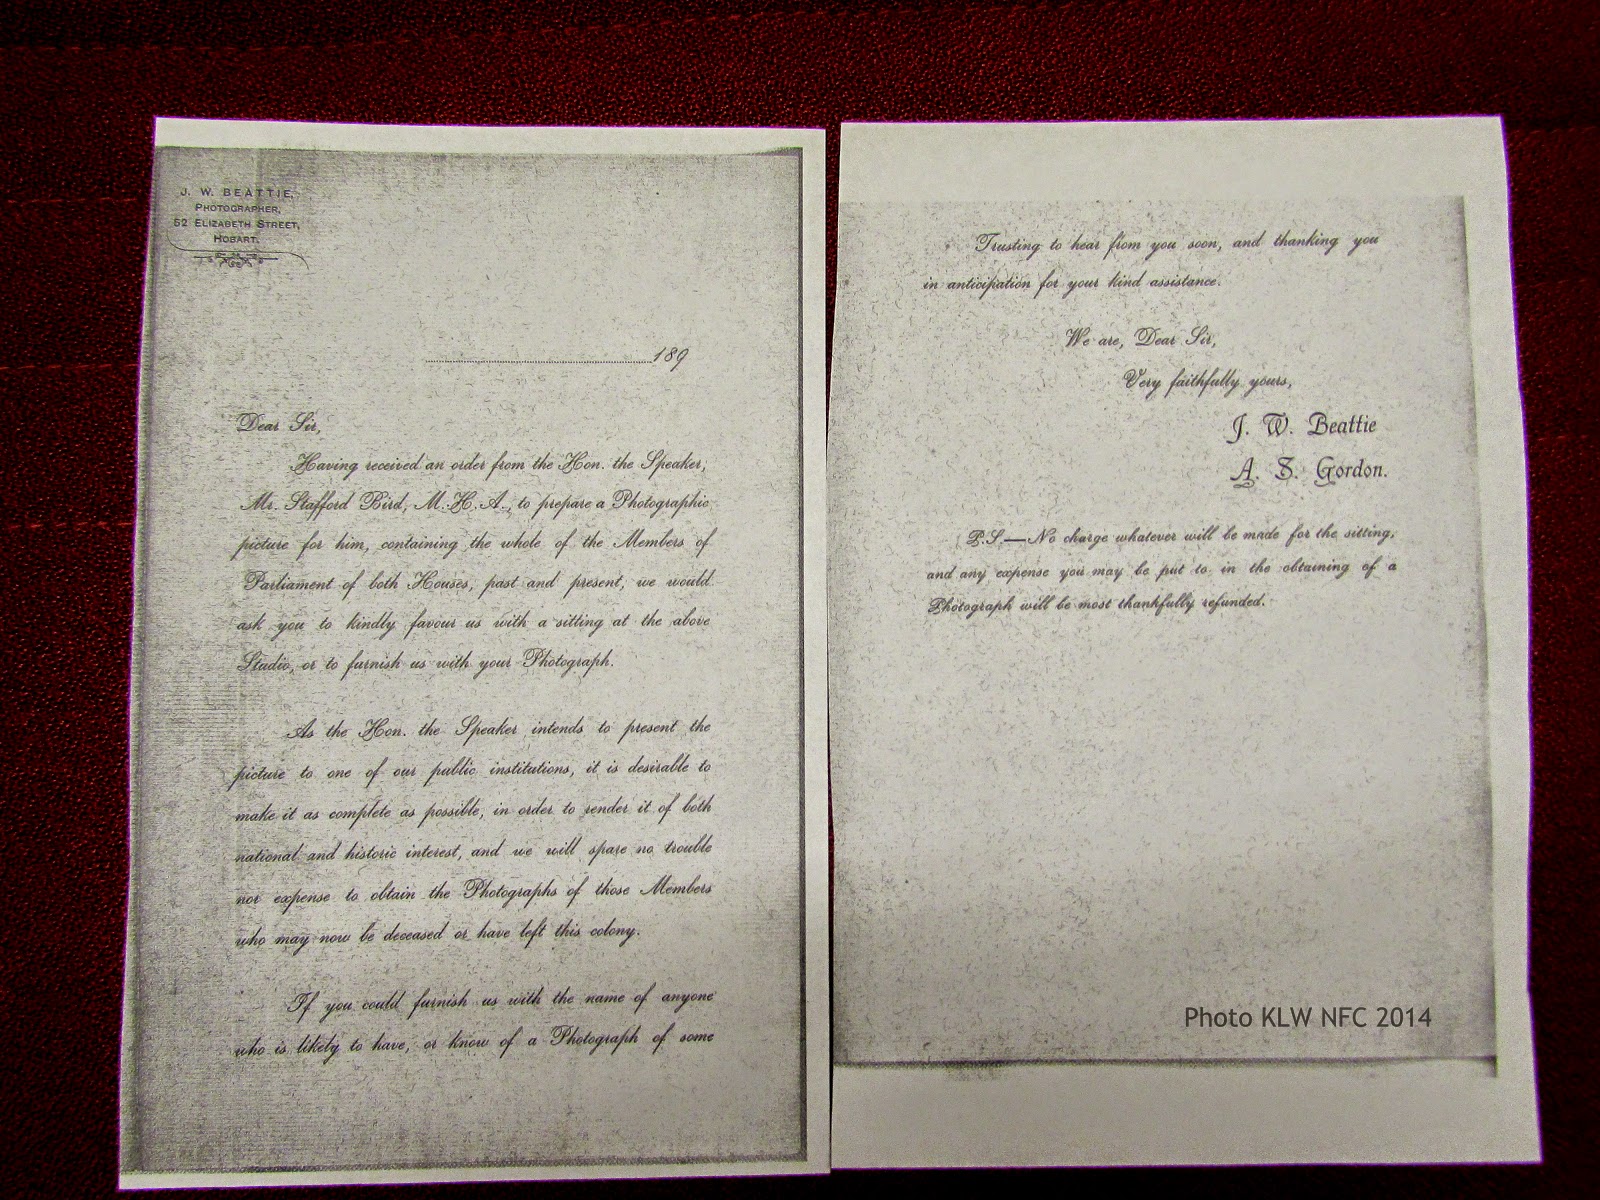 J. W. BEATTIE,
PHOTOGRAPHER,
52 ELIZABETH STREET,
HOBART.
189
Dear Sir,
Having received an order from the Hon. the Speaker,
Mr. Stafford Bird, M.H.A., to prepare a Photographic
picture for him, containing the whole of the Members of
Parliament of both Houses, past and present, we would
ask you to kindly favour us with a sitting at the above
Studio, or to furnish us with your Photograph.
As the Hon. the Speaker intends to present the
picture to one of our public institutions, it is desirable to
make it as complete as possible, in order to render it of both
national and historic interest, and we will spare no trouble
nor expense to obtain the Photographs of those Members
who may now be deceased or have left this colony.
If you could furnish us with the name of anyone
who is likely to have, or know of a Photograph of some
Trusting to hear from you soon, and thanking you
in anticipation for your kind assistance.
We are, Dear Sir,
Very faithfully yours,
J. W. Beattie
A. S. Gordon.
P.S.—No charge whatever will be made for the sitting,
and any expense you may be put to in the obtaining of a
Photograph will be most thankfully refunded.
Photo KLW NFC 2014